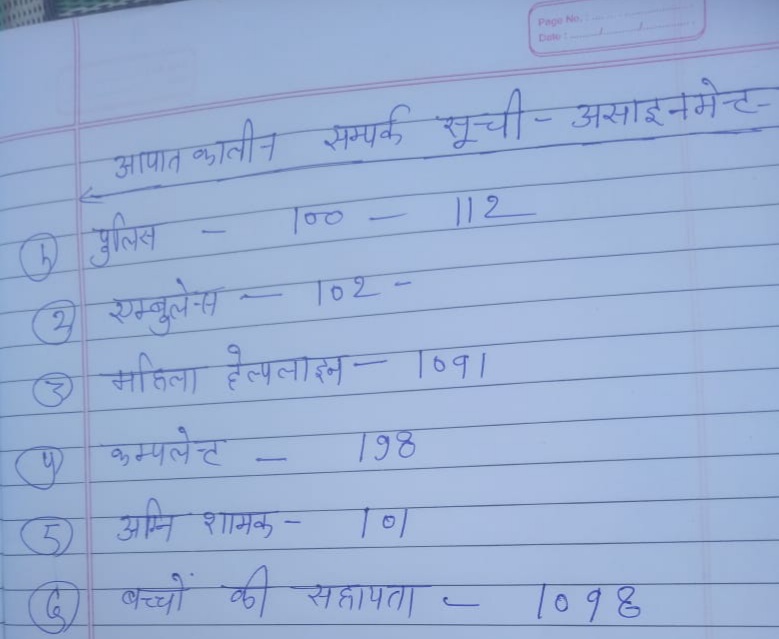 Page No. :
Date : / /
आपातकालीन सम्पर्क सूची - असाइनमेन्ट -
① पुलिस - 100 - 112
② एम्बुलेन्स - 102 -
③ महिला हेल्पलाइन - 1091
④ कम्पलेन्ट - 198
⑤ अग्नि शामक - 101
⑥ बच्चों की सहायता - 1098